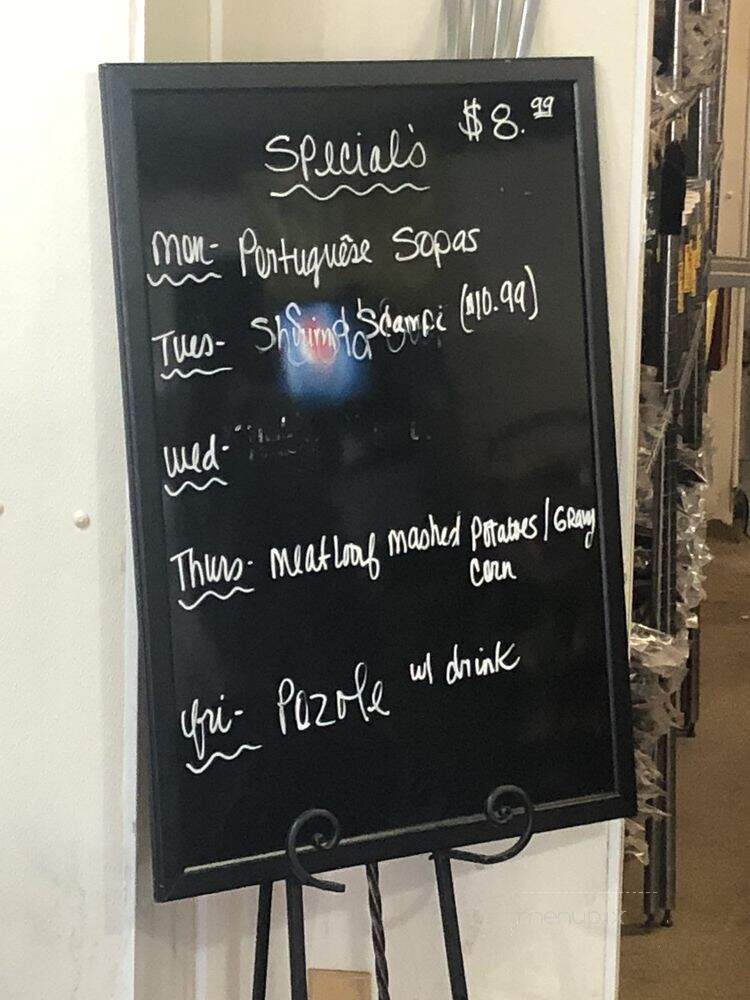 Special's $8.99
Mon- Portuguêse Sopas
Tues- Shrimp Scampi ($10.99)
Wed-
Thurs- Meatloaf mashed Potatoes / Gravy
Corn
Fri- Pozole w/ drink
menupix